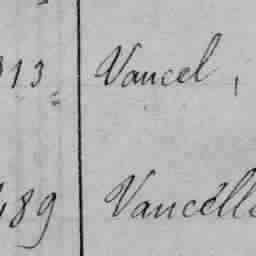 13 Vancel,
89 Vancélle